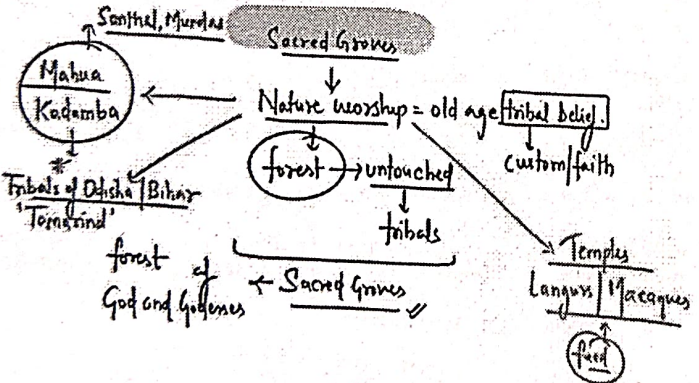 Santhal, Mundas
Sacred Groves
Mahua
Kadamba
Nature worship = old age tribal belief.
custom/faith
forest → untouched
tribals
Tribals of Odisha/Bihar
'Tamarind'
forest of
God and Godesses ← Sacred Groves
Temples
Langurs | Macaques
feed